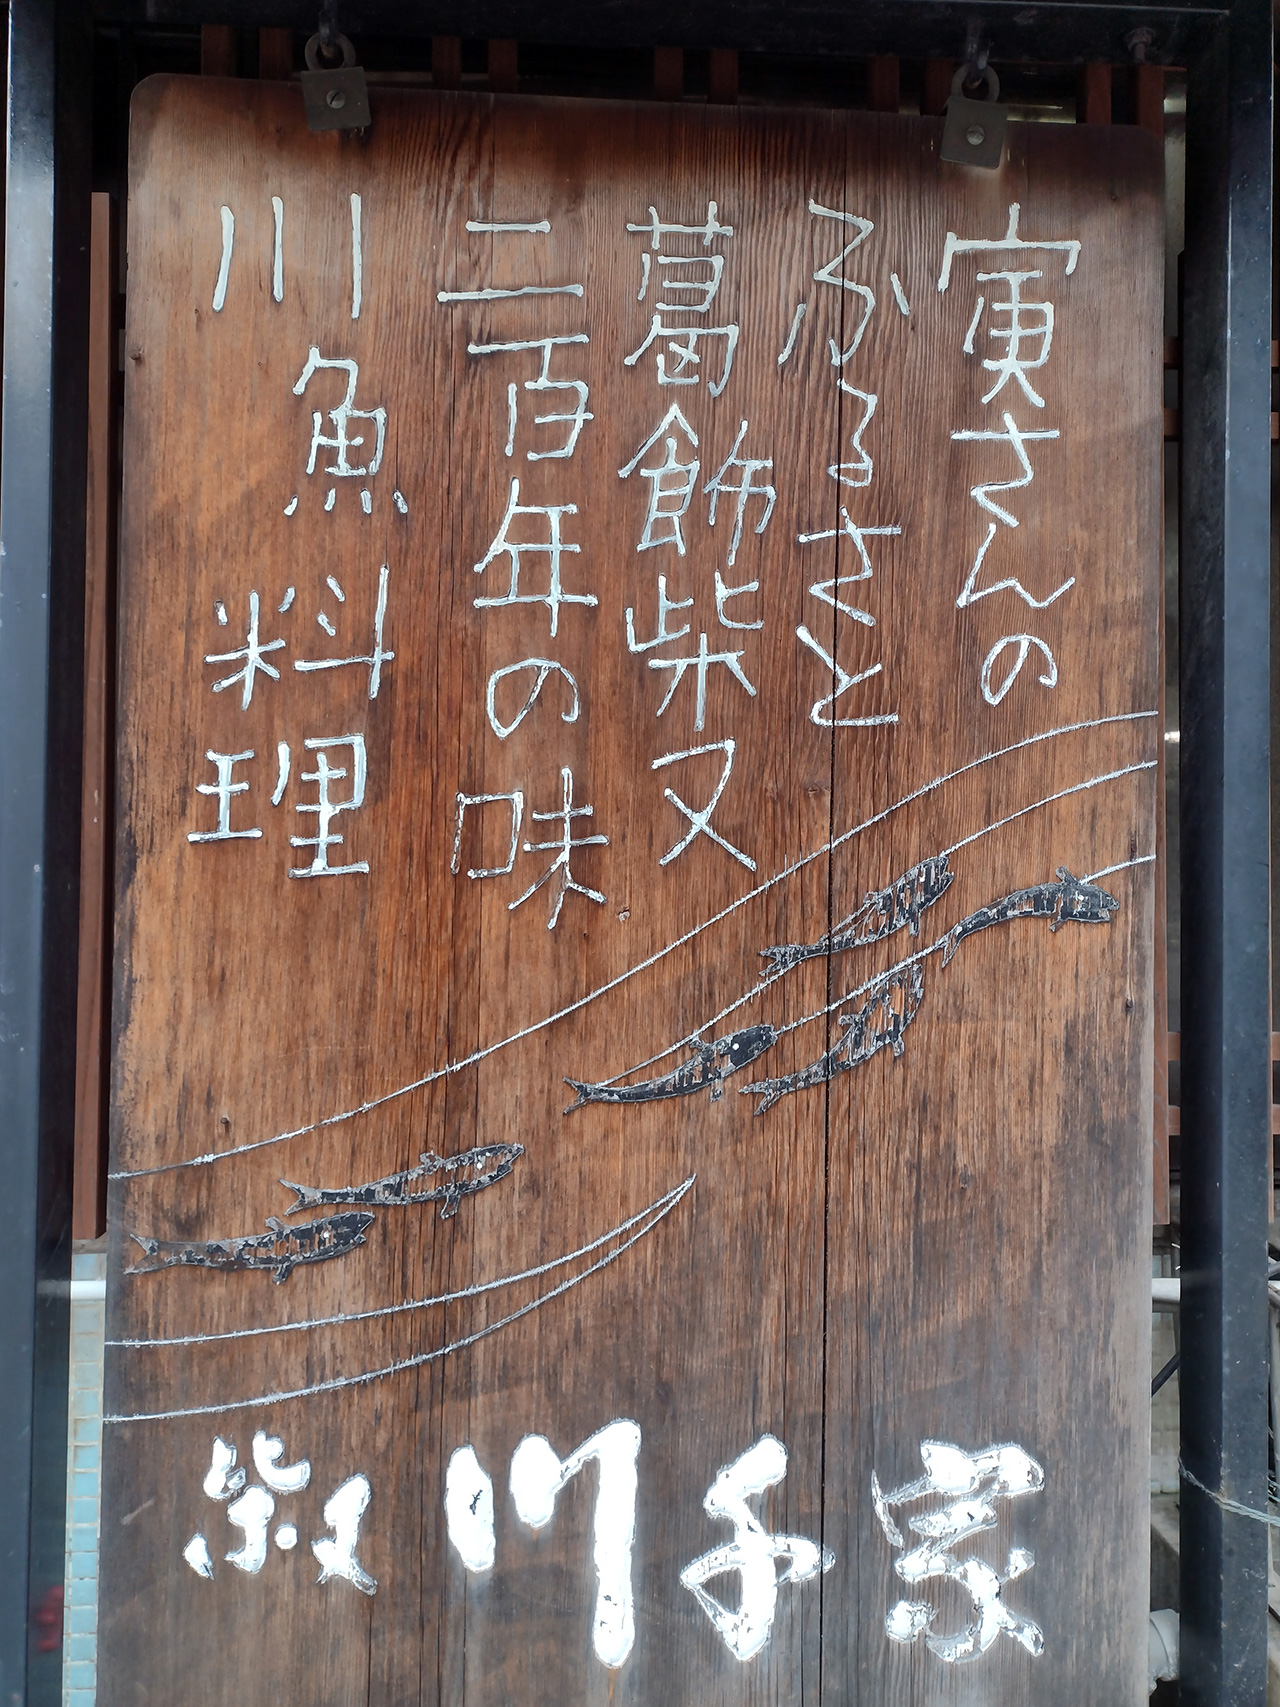 寅さんの
ふるさと
葛飾柴又
二百年の味
川魚料理
柴又
川千家